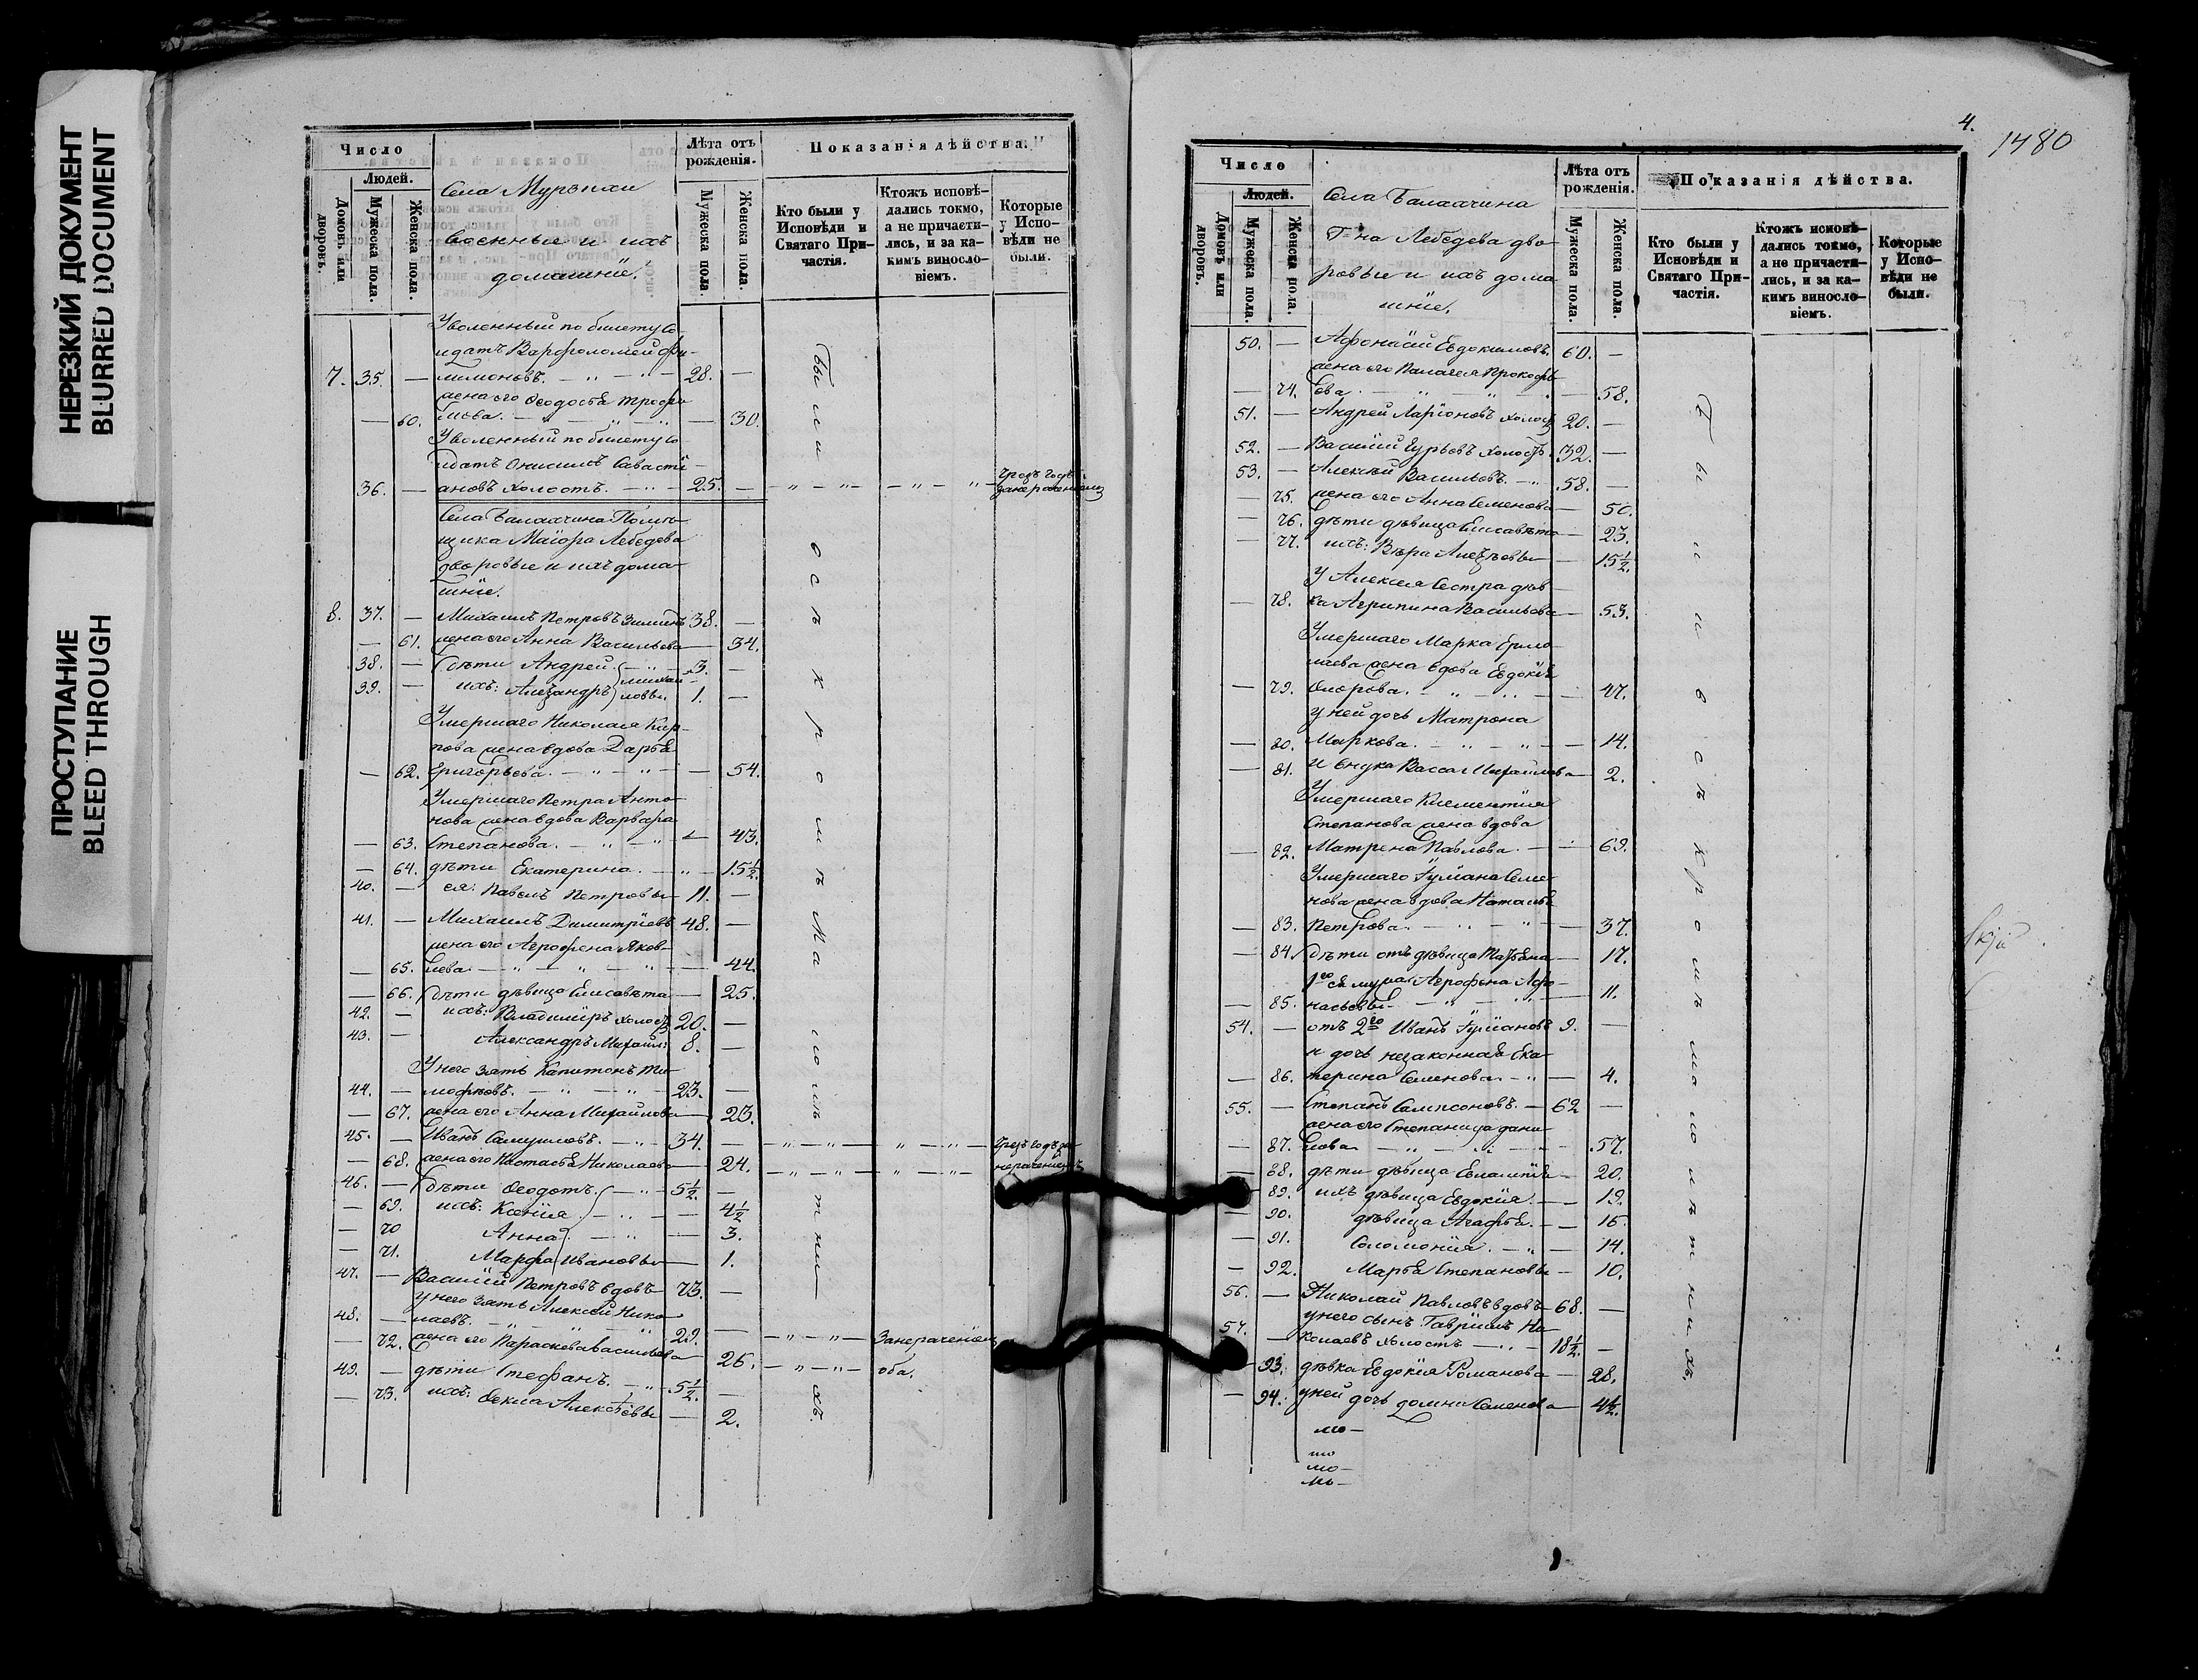 НЕРЕЗКИЙ ДОКУМЕНТ
BLURRED DOCUMENT
ПРОСТУПАНИЕ
BLEED THROUGH
Число
Людей.
Домовъ или дворовъ.
Мужеска пола.
Женска пола.
Села
военные и ихъ
домашніе.
Лѣта отъ рожденія.
Мужеска пола.
Женска пола.
Показанія дѣйства.
Кто были у Исповѣди и Святаго Причастія.
Ктожъ исповѣдались токмо, а не причастились, и за какимъ винословіемъ.
Которые у Исповѣди не были.
Уволенный по билету Со-
лдатъ Варфоломей Фи-
7. 35. — лимоновъ. — 28. —
жена его Ѳеодосья Трофи
— 60. мова. — 30.
Уволенный по билету Со
лдатъ Онисимъ Савасті-
36. — ановъ холостъ. — 25. —
Села Помѣ-
щика Маіора Лебедева
дворовые и ихъ дома-
шніе.
8. 37. — Михаилъ Петровъ 38. —
— 61. жена его Анна Васильева — 34.
38. — Дѣти Андрей 3. —
39. — ихъ: Александръ Михаиловы. 1. —
Умершаго Николая Кар-
пова жена вдова Дарья
— 62. Григорьева. — 54.
Умершаго Петра Анто-
нова жена вдова Варвара
— 63. Степанова. — 43.
— 64. дѣти Екатерина. — 15½
40. — ея: Павелъ Петровы 11. —
41. — Михаилъ Димитріевъ 48. —
жена его Агрофена Яков-
— 65. лева — 44.
— 66. Дѣти дѣвица Елисавета — 25.
42. — ихъ: Владиміръ холостъ 20. —
43. — Александръ Михаил: 8. —
У него зять Капитонъ Ти-
44. — мофѣевъ. — 23. —
— 67. жена его Анна Михайлова — 23.
45. — Иванъ Самуиловъ. — 34. —
— 68. жена его Настасья Николаева — 24.
46. — Дѣти Ѳеодотъ. 5½ —
— 69. ихъ: Ксенія — 4½
— 70 Анна — 3.
— 71. Марфа Ивановы — 1.
47. — Василій Петровъ вдовъ 73. —
у него зять Алексѣй Нико-
48. — лаевъ. — 29. —
— 72. жена его Параскева Васильева 26. Занераченіемъ оба.
49. — дѣти Стефанъ. — 5½ —
— 73. ихъ: Ѳекла Алексѣевы — 2.
Были всѣ кромѣ малолѣтнихъ.
4.
1480
Число
Людей.
Домовъ или дворовъ.
Мужеска пола.
Женска пола.
Села
Г-на Лебедева дво-
ровые и ихъ дома-
шніе.
Лѣта отъ рожденія.
Мужеска пола.
Женска пола.
Показанія дѣйства.
Кто были у Исповѣди и Святаго Причастія.
Ктожъ исповѣдались токмо, а не причастились, и за какимъ винословіемъ.
Которые у Исповѣди не были.
50. — Афонасій Евдокимовъ. 60. —
жена его Пелагея Прокофь
— 74. ева. — 58.
51. — Андрей Ларіоновъ холостъ 20. —
52. — Василій Гурьевъ холостъ. 32. —
53. — Алексѣй Васильевъ. — 58. —
— 75. жена его Анна Семенова — 50.
— 76. дѣти дѣвица Елисавета — 23.
— 77. ихъ: Вѣра Алексѣевы — 15½.
У Алексѣя Сестра дѣв-
— 78. ка Агрипина Васильева — 53.
Умершаго Марка Ермо-
лаева жена вдова Евдокія
— 79. — 47.
у ней дочь Матрона
— 80. Маркова. — 14.
— 81. и внука Васса Михайлова 2.
Умершаго Климентія
Степанова жена вдова
— 82. Матрена Павлова. — 69.
Умершаго Іуліана Семе-
нова жена вдова Наталья
— 83. Петрова. — 37.
— 84. Дѣти отъ дѣвица Татьяна — 17.
1го ея мужа Агрофена Афо-
— 85. насьевы — 11.
54. — отъ 2го Иванъ Іуліановъ 9. —
и дочь незаконная Ека-
— 86. терина Семенова. — 4.
55. — Степанъ Сампсоновъ. — 62 —
жена его Степанида Дани-
— 87. лова — 57.
— 88. дѣти дѣвица Евлампія — 20.
— 89. ихъ дѣвица Евдокія. — 19.
— 90. дѣвица Агафья. — 16.
— 91. Соломонія. — 14.
— 92. Марья Степановы — 10.
56. — Николай Павловъ вдовъ — 68. —
у него сынъ Гавріилъ Ни-
57. — колаевъ холостъ — 18½. —
— 93. дѣвка Евдокія Романова — 28.
— 94. у ней дочь Домна Семенова 4½.
Были всѣ кромѣ малолѣтнихъ.